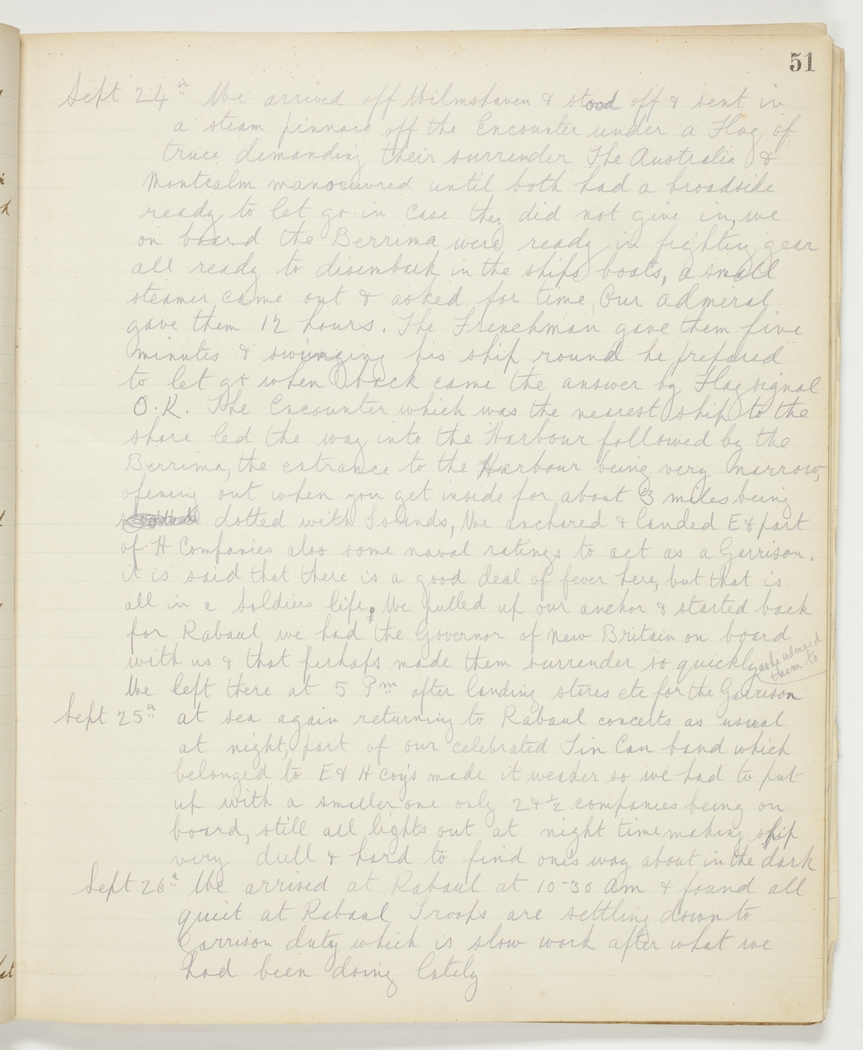 51
Sept 24th We arrived off Wilmshaven & stood off & sent in
a steam pinnace off the Encounter under a Flag of
truce demanding their surrender The Australia &
Montcalm manoeuvred until both had a broadside
ready to let go in case they did not give in, we
on board the Berrima were ready in fighting gear
all ready to disembark in the ships boats, a small
steamer came out & asked for time, Our admiral
gave them 12 hours. The Frenchman gave them five
minutes & swinging his ship round he prepared
to let go when back came the answer by Flag signal
O.K. The Encounter which was the nearest ship to the
shore led the way into the Harbour followed by the
Berrima, the entrance to the Harbour being very narrow,
opening out when you get inside for about 3 miles being
dotted with Sounds, We anchored & landed E & part
of H Companies also some naval ratings to act as a Garrison.
it is said that there is a good deal of fever here, but that is
all in a Soldiers life, We pulled up our anchor & started back
for Rabaul we had the Governor of New Britain on board
with us & that perhaps made them surrender so quickly as he advised
them to
We left there at 5 Pm after landing stores etc for the Garrison
Sept 25th at sea again returning to Rabaul concerts as usual
at night, part of our celebrated Tin Can band which
belonged to E & H coy's made it weaker so we had to put
up with a smaller one only 2 & ½ companies being on
board, still all lights out at night time making ship
very dull & hard to find ones way about in the dark
Sept 26th We arrived at Rabaul at 10-30 am & found all
quiet at Rabaul Troops are settling down to
Garrison duty which is slow work after what we
had been doing lately